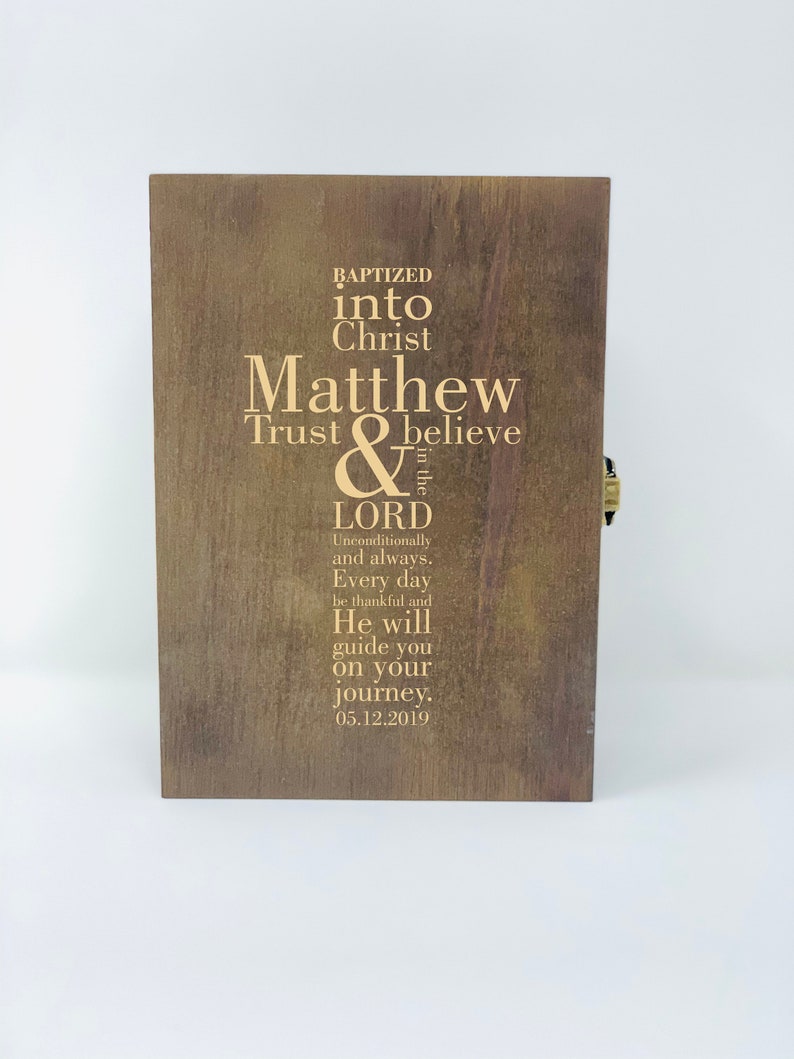 BAPTIZED
into
Christ
Matthew
Trust & believe
in the
LORD
Unconditionally
and always.
Every day
be thankful and
He will
guide you
on your
journey.
05.12.2019